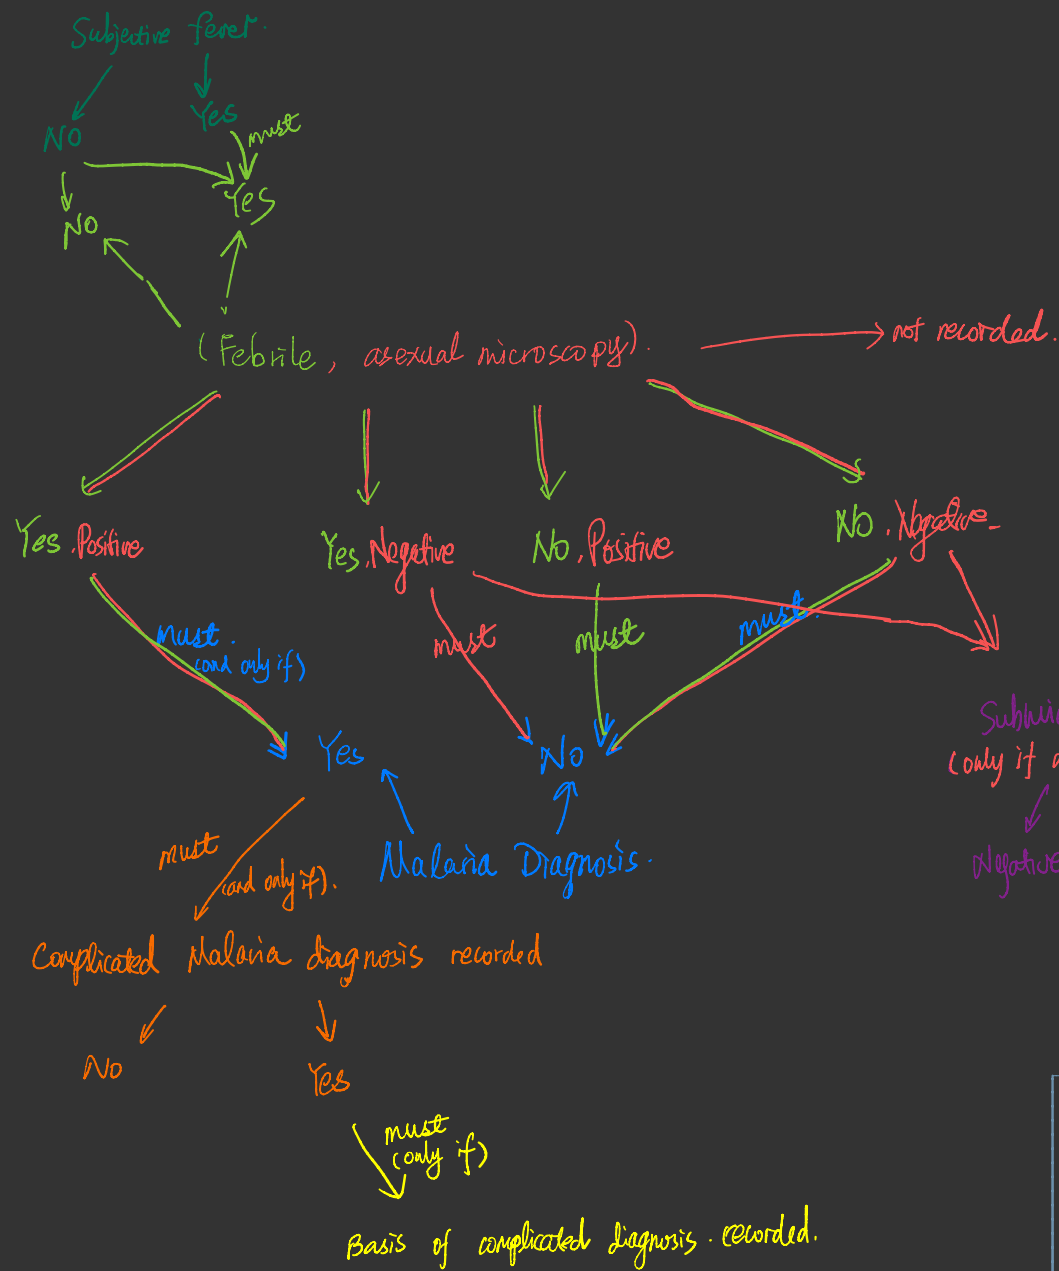 Subjective fever.
NO
Yes
must
Yes
NO
(Febrile, asexual microscopy).
not recorded.
Yes, Positive
Yes, Negative
No, Positive
No, Negative
must.
(and only if)
must
must
must.
Yes
No
(only if
must
(and only if).
Malaria Diagnosis.
Negative
Complicated Malaria diagnosis recorded
No
Yes
must
(only if)
Basis of complicated diagnosis recorded.